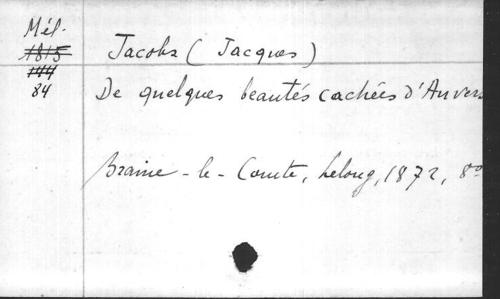 Mél.
1815
144
84
Jacobs (Jacques)
De quelques beautés cachées d'Anvers
Braine-le-Comte, Lelong, 1872, 8º